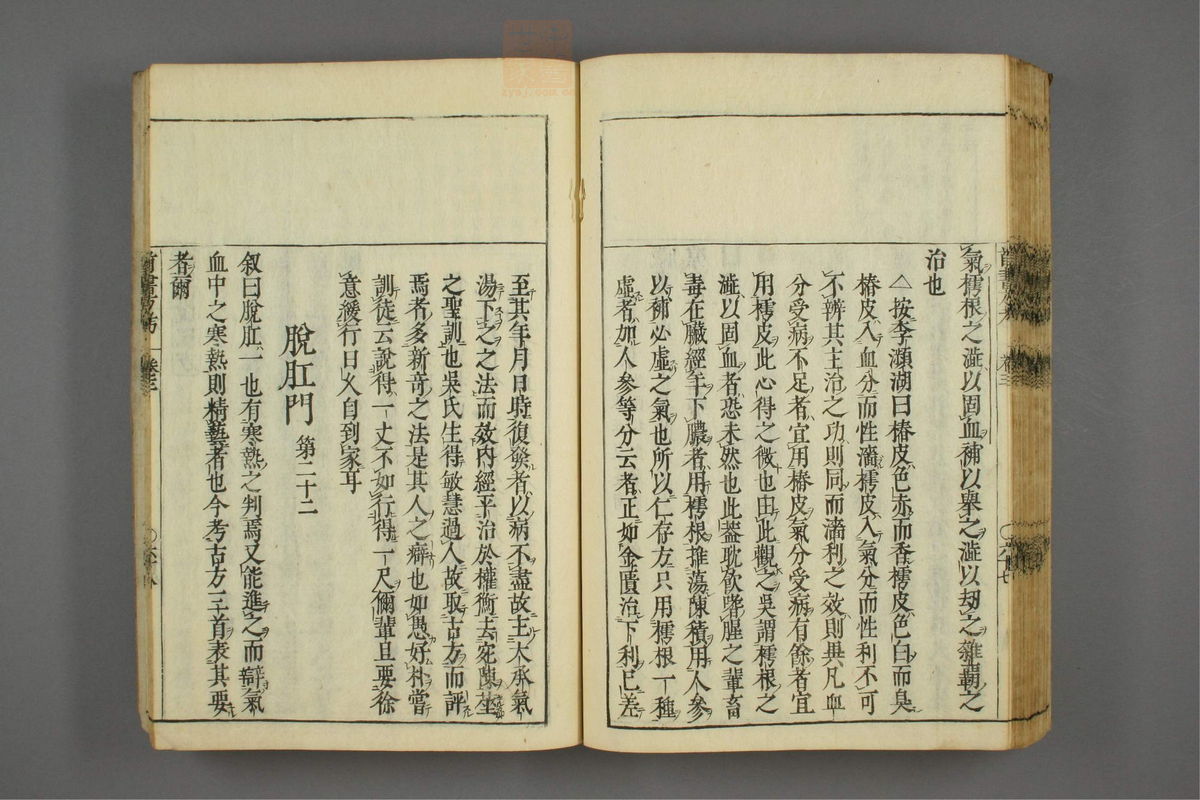 氣樗根之澁以固血補以舉之澁以刼之雜覇之
治也
△按李瀕湖曰椿皮色赤而香樗皮色白而臭
椿皮入血分而性濇樗皮入氣分而性利不可
不辨其主治之功則同而濇利之效則異凡血
分受病不足者宜用椿皮氣分受病有餘者宜
用樗皮此心得之微也由此觀之吳謂樗根之
澁以固血者恐未然也此蓋耽飲嗜腥之輩畜
毒在臟經年下膿者用樗根推蕩陳積用人參
以補必虛之氣也所以仁存方只用樗根一種
虛者加人參等分云者正如金匱治下利已差
至其年月日時復發者以病不盡故主大承氣
湯下之之法而效内經平治於權衡去宛陳莝
之聖訓也吳氏生得敏慧過人故取古方而評
焉者多新奇之法是其人之癖也如愚好朴嘗
訓徒云說得一丈不如行得一尺儞輩且要徐
意緩行日久自到家耳
脫肛門 第二十二
叙曰脫肛一也有寒熱之判焉又能進之而辯氣
血中之寒熱則精藝者也今考古方三首表其要
者爾
卷三